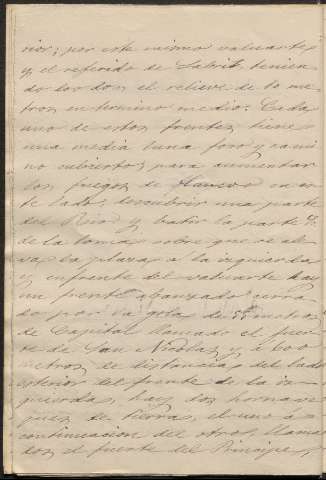 rior; por este mismo baluarte
y el referido de Labrit, tenien
do los dos el relieve de 10 me
tros en termino medio: Cada
uno de estos frentes tiene
una media luna foso y cami
no cubierto; para aumentar
los fuegos de flanco en es
te lado, descubrir una parte
del Rio y batir la parte
de la loma sobre que se ele
va la plaza à la izquierda
y enfrente del baluarte hay
un frente abanzado cerra
do por la gola de metros
de Capital llamado el fuer
te de San Nicolas y á 600
metros de distancia del lado
esterior del frente de la iz
quierda, hay dos hornave
ques de tierras, el uno á
continuacion del otro, llama
dos el fuerte del Principe,